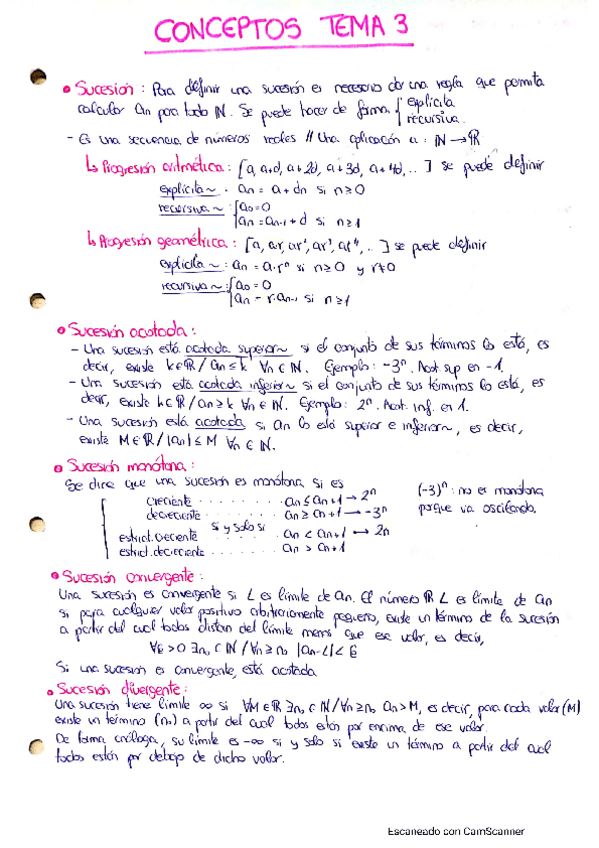 CONCEPTOS TEMA 3
• Sucesión : Para definir una sucesión es necesario dar una regla que permita
calcular an para todo ℕ. Se puede hacer de forma { explícita
recursiva.
- Es una secuencia de números reales // Una aplicación a : ℕ → ℝ
↳ Progresión aritmética : [a, a+d, a+2d, a+3d, a+4d, .. ] se puede definir
explícita ~ . an = a + dn si n ≥ 0
recursiva ~ : { a0 = 0
an = an-1 + d si n ≥ 1
↳ Progresión geométrica : [a, ar, ar², ar³, ar⁴, .. ] se puede definir
explícita ~ : an = a·rⁿ si n ≥ 0 y r ≠ 0
recursiva ~ : { a0 = 0
an = r·an-1 si n ≥ 1
• Sucesión acotada :
- Una sucesión está acotada superior~ si el conjunto de sus términos lo está, es
decir, existe k∈ℝ / an ≤ k ∀n ∈ ℕ. Ejemplo : -3ⁿ. Acot. sup en -1.
- Una sucesión está acotada inferior~ si el conjunto de sus términos lo está, es
decir, existe k∈ℝ / an ≥ k ∀n ∈ ℕ. Ejemplo : 2ⁿ. Acot. inf. en 1.
- Una sucesión está acotada si an lo está superior e inferior~, es decir,
existe M∈ℝ / |an| ≤ M ∀n ∈ ℕ.
• Sucesión monótona :
Se dice que una sucesión es monótona si es
creciente . . . . . . . an ≤ an+1 → 2ⁿ (-3)ⁿ : no es monótona
decreciente . . . . . . an ≥ an+1 → -3ⁿ porque va oscilando.
si y solo si
estrict. creciente . . . . . . an < an+1 → 2n
estrict. decreciente . . . . . an > an+1
• Sucesión convergente :
Una sucesión es convergente si L es límite de an. El número ℝ L es límite de an
si para cualquier valor positivo arbitrariamente pequeño, existe un término de la sucesión
a partir del cual todos distan del límite menos que ese valor, es decir,
∀ε > 0 ∃n₀ ∈ ℕ / ∀n ≥ n₀ |an - L| < ε
Si una sucesión es convergente, está acotada
• Sucesión divergente :
Una sucesión tiene límite ∞ si ∀M ∈ ℝ ∃n₀ ∈ ℕ / ∀n ≥ n₀ an > M, es decir, para cada valor (M)
existe un término (n₀) a partir del cual todos están por encima de ese valor.
De forma análoga, su límite es -∞ si y solo si existe un término a partir del cual
todos están por debajo de dicho valor.
Escaneado con CamScanner